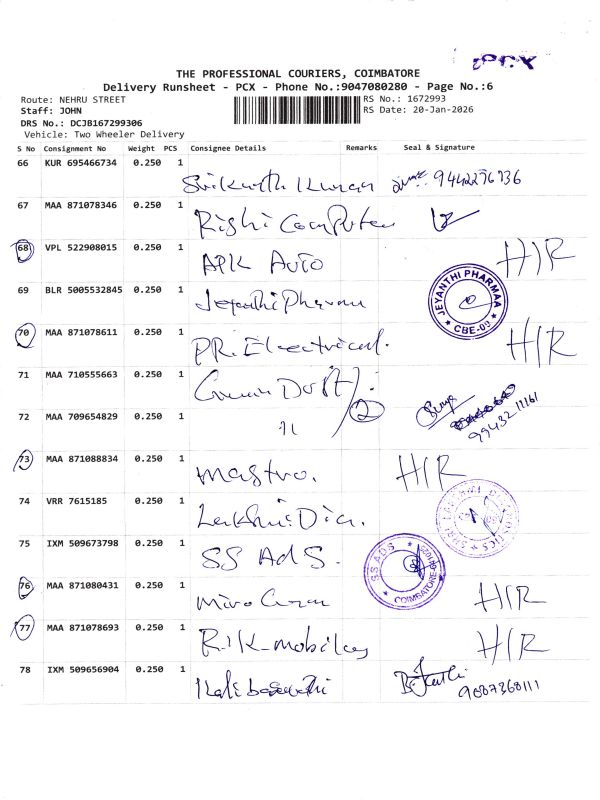 PCX
THE PROFESSIONAL COURIERS, COIMBATORE
Delivery Runsheet - PCX - Phone No.:9047080280 - Page No.:6
Route: NEHRU STREET RS No.: 1672993
Staff: JOHN RS Date: 20-Jan-2026
DRS No.: DCJB167299306
Vehicle: Two Wheeler Delivery
S No Consignment No Weight PCS Consignee Details Remarks Seal & Signature
66 KUR 695466734 0.250 1
67 MAA 871078346 0.250 1 Rishi Computer
68 VPL 522908015 0.250 1 APK Auto H/R
69 BLR 5005532845 0.250 1 Jeyanthi Pharma JEYANTHI PHARMAA CBE-09
70 MAA 871078611 0.250 1 P.R. Electrical. H/R
71 MAA 710555663 0.250 1
72 MAA 709654829 0.250 1 11 2
73 MAA 871088834 0.250 1 Mastro. H/R
74 VRR 7615185 0.250 1
75 IXM 509673798 0.250 1 SS Ads. S S ADS COIMBATORE
76 MAA 871080431 0.250 1 H/R
77 MAA 871078693 0.250 1 R.K mobiles H/R
78 IXM 509656904 0.250 1